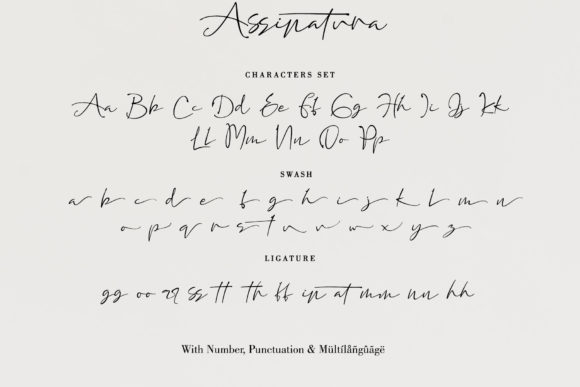 Assinatura
CHARACTERS SET
Aa Bb Cc Dd Ee Ff Gg Hh Ii Jj Kk
Ll Mm Nn Oo Pp
SWASH
a b c d e f g h i j k l m n
o p q r s t u v w x y z
LIGATURE
gg oo rr ss tt th ff in at mm nn hh
With Number, Punctuation & Mültílåñgûãgë